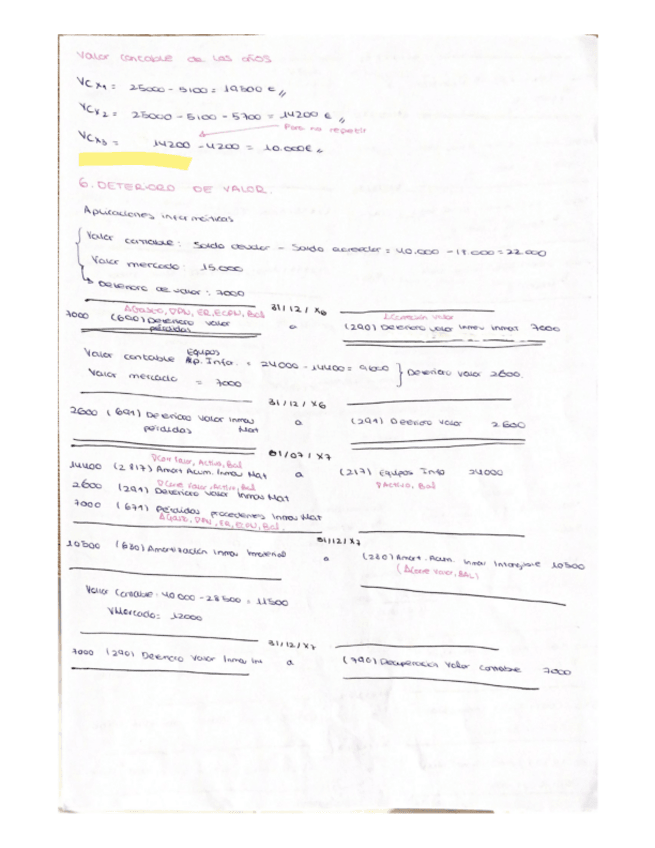 Valor contable de los años
VCX1 = 25000 - 5100 = 19800 €
VCX2 = 25000 - 5100 - 5700 = 14200 €
Para no repetir
VCX3 = 14200 - 4200 = 10.000€
6. DETERIORO DE VALOR.
Aplicaciones informáticas
Valor contable: Saldo deudor - Saldo acreedor = 40.000 - 18.000 = 22.000
Valor mercado: 15.000
Deterioro de valor: 7000
31/12/X6
ΔGasto, DPN, ER, ECPN, Bal
ΔCorrección valor
7000 (690) Deterioro valor a (290) Deterioro valor inmov inmat 7000
pérdidas
Equipos
Valor contable Ap. Infor. = 24000 - 14400 = 9600
Valor mercado = 7000
Deterioro valor 2600.
31/12/X6
2600 (691) Deterioro valor inmov a (291) Deterioro valor 2600
pérdidas Mat
01/07/X7
14400 (2817) Amort Acum. Inmov Mat a (217) Equipos Info 24000
∇Activo, Bal
2600 (291) Deterioro valor Inmov Mat
7000 (671) Pérdidas procedentes Inmov Mat
ΔGasto, DPN, ER, ECPN, Bal.
31/12/X7
10500 (680) Amortización inmov inmaterial a (280) Amort. Acum. Inmov Intangible 10500
(ΔCorrec valor, BAL)
Valor Contable: 40 000 - 28 500 = 11500
VMercado: 12000
31/12/X7
7000 (290) Deterioro Valor Inmov Im a (790) Recuperacion Valor contable 7000